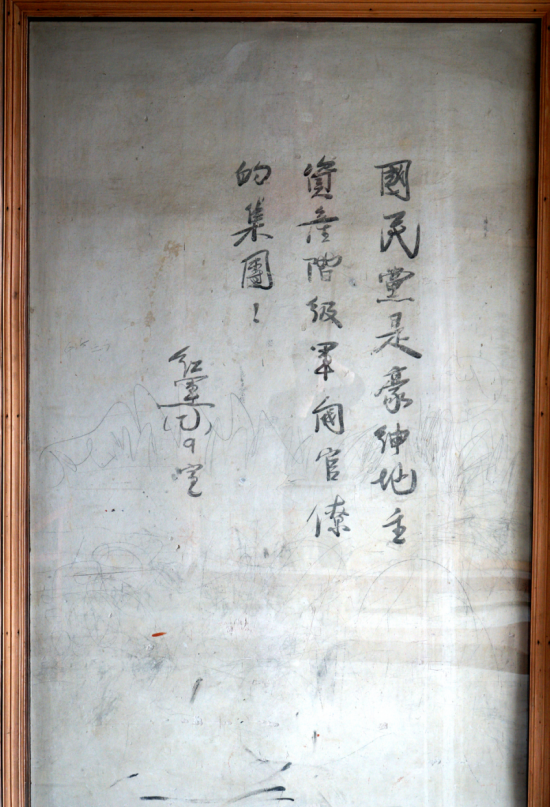 國民黨是豪紳地主
資產階級軍閥官僚
的集團！
紅軍
(七)9宣